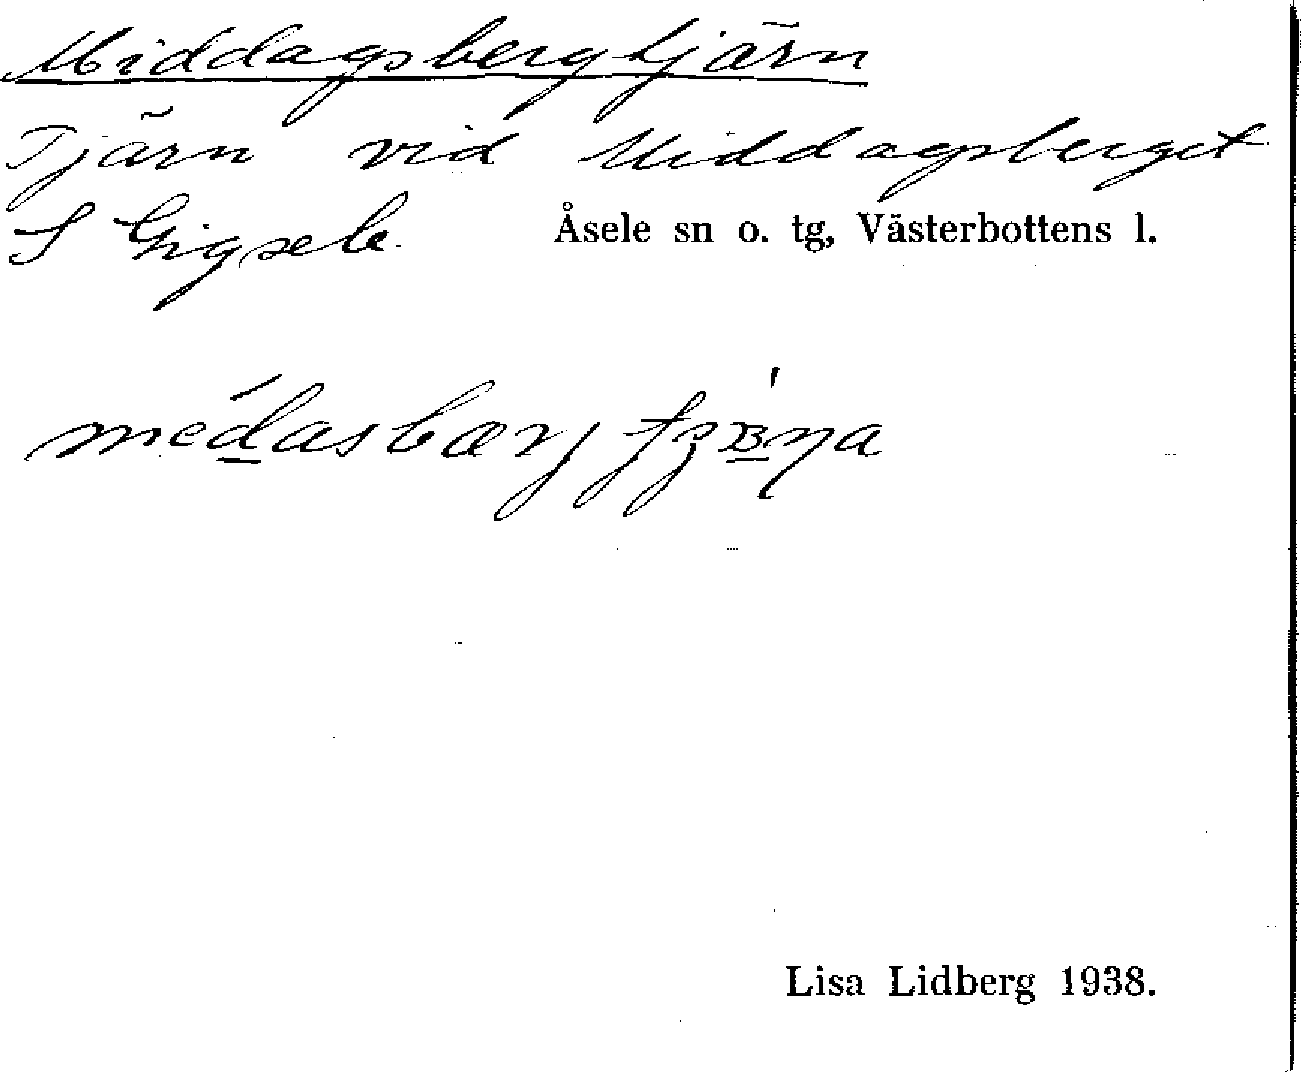 Middagsbergtjärn
Tjärn vid Middagsberget
S Gigsele. Åsele sn o. tg, Västerbottens l.
Lisa Lidberg 1938.